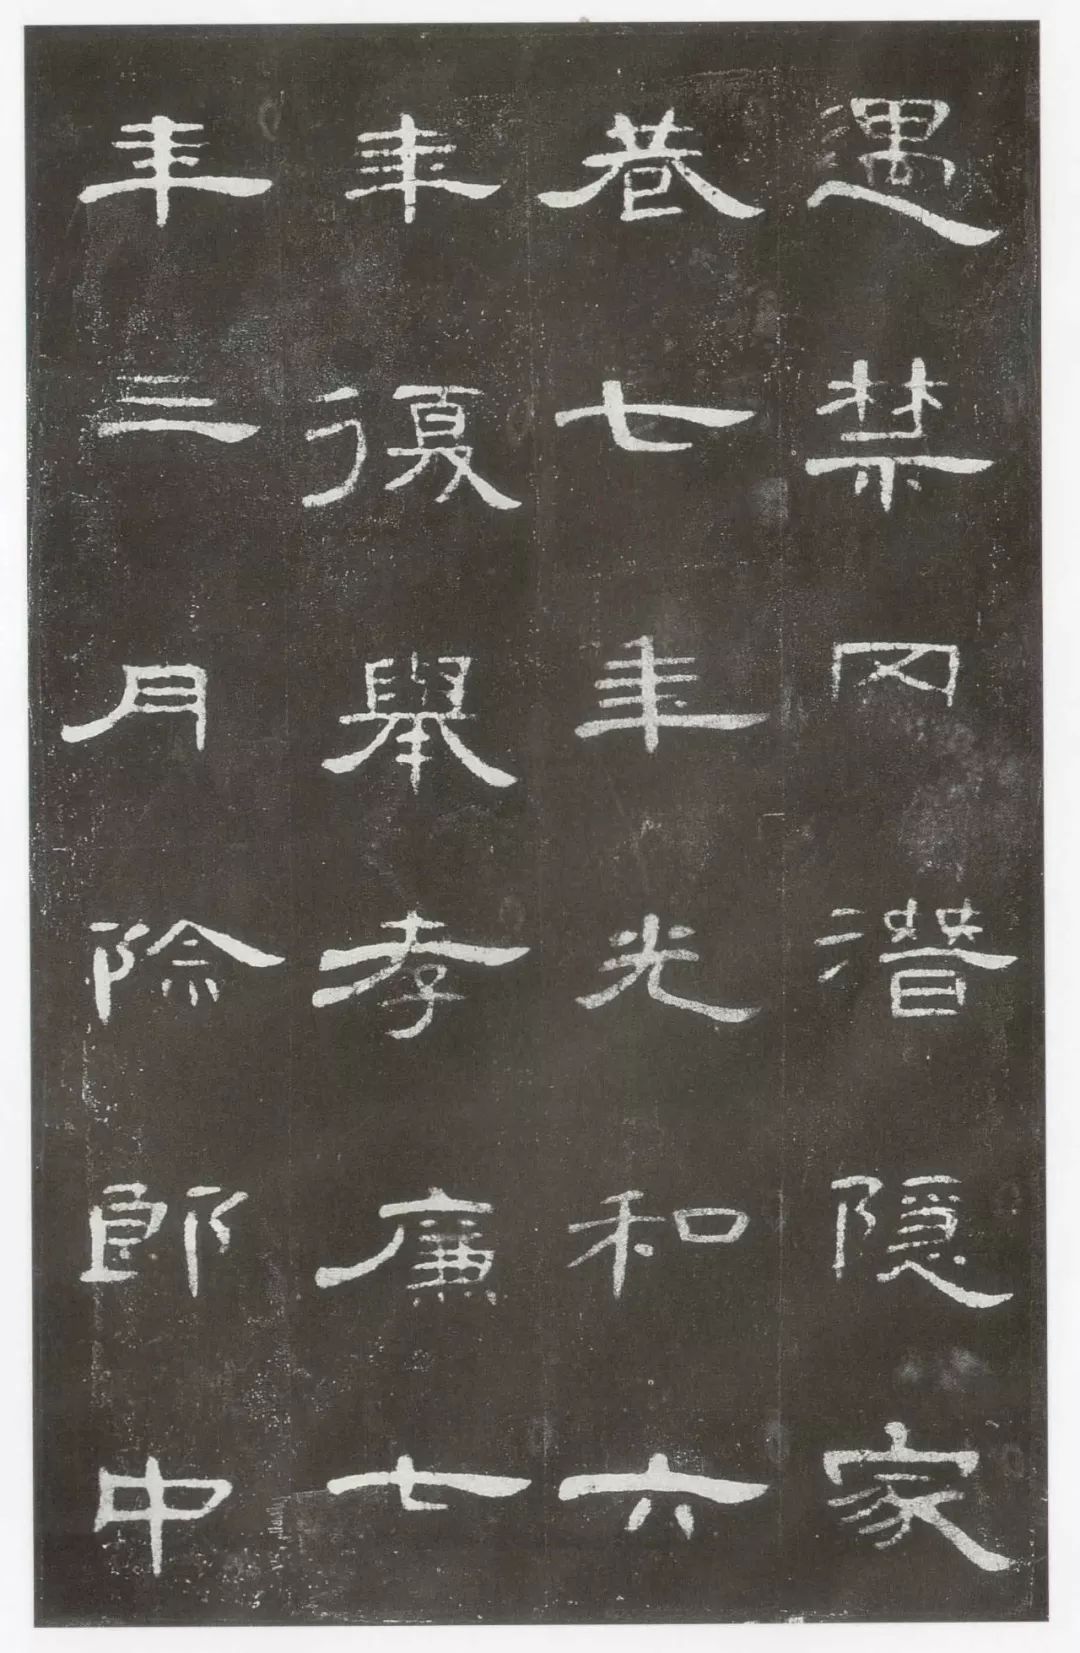 遇禁冈潛隱家
巷七年光和六
年復舉孝廉七
年三月除郎中